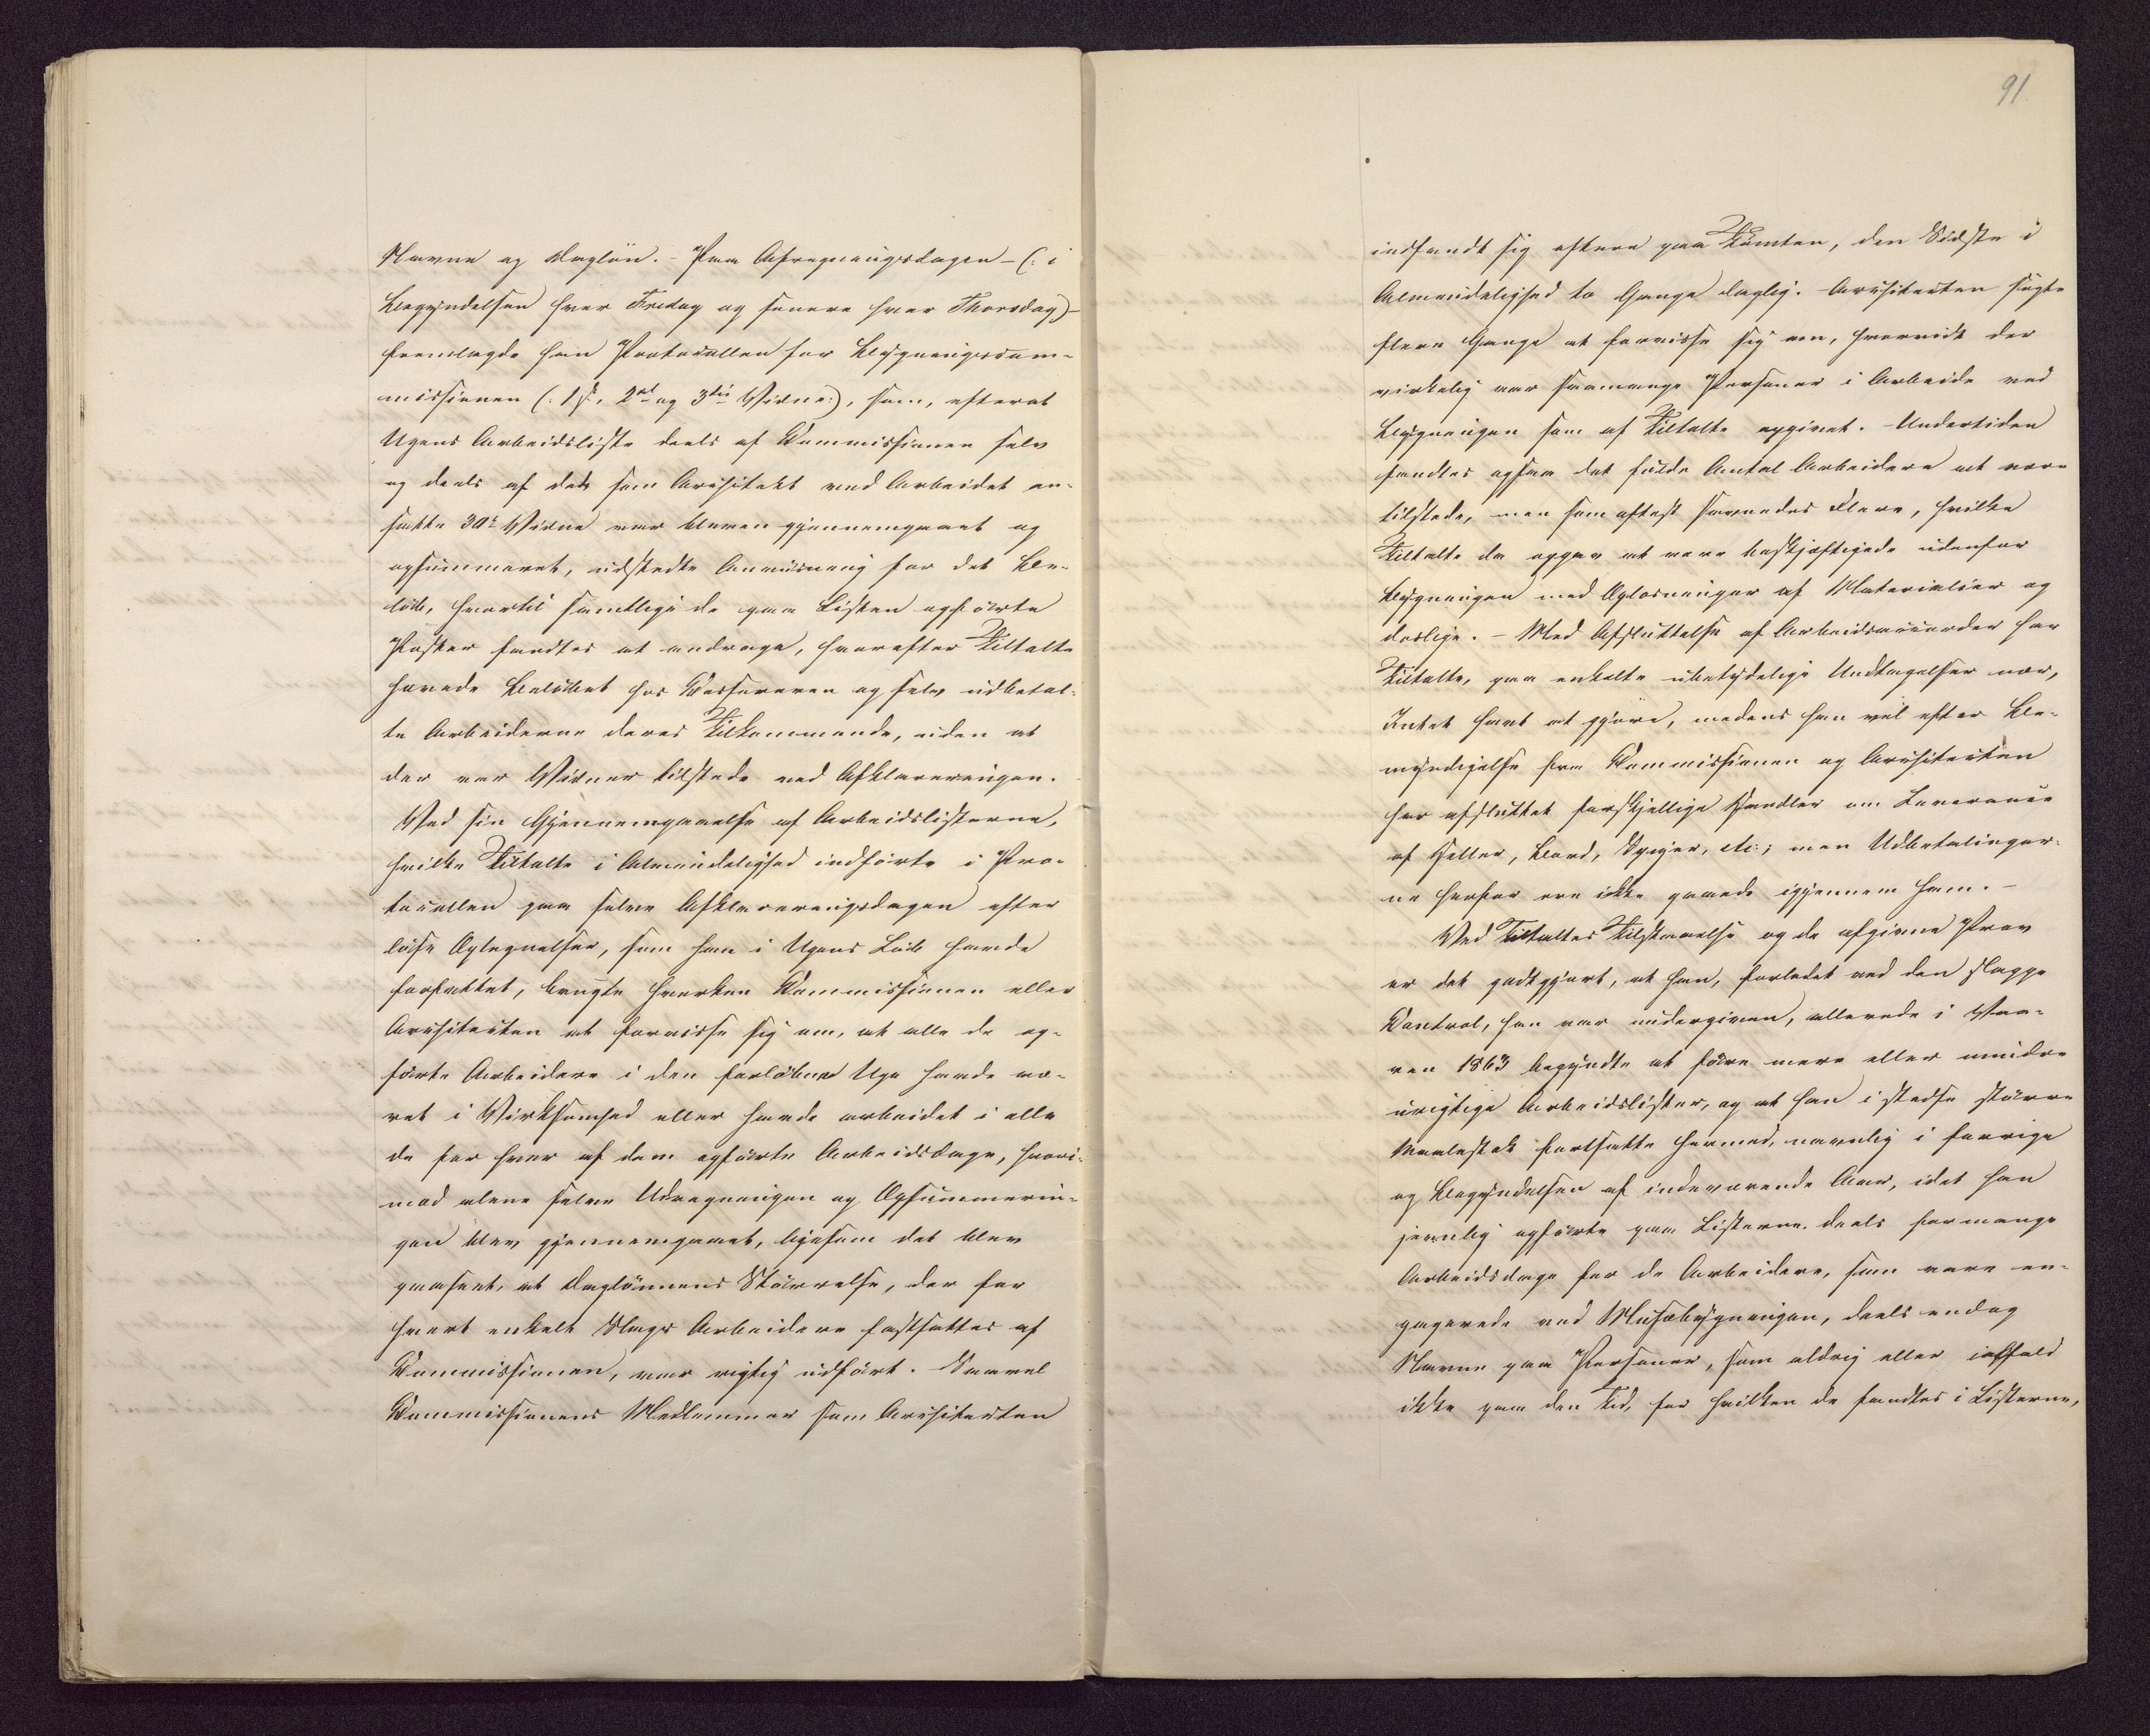 Navne og Dagløn. – Paa Afregningsdagen – (: i
Begyndelsen hver Fredag og senere hver Thorsdag) –
fremlagde han Protocollen for Bygningscom-
missionen (: 1ste, 2det og 3die Vidne:), som, efterat
Ugens Arbeidsliste deels af Kommissionen selv
og deels af det som Arkitekt ved Arbeidet an-
satte 30te Vidne var bleven gjennemgaaet og
opsummeret, udstedte Anvisning for det Be-
løb, hvortil samtlige de paa Listen opførte
Poster fandtes at andrage, hvorefter Tiltalte
hævede Beløbet hos Kassereren og selv udbetal-
te Arbeiderne deres Tilkommende, uden at
der var Vidner tilstede ved Afklareringen.
Ved sin Gjennemgaaelse af Arbeidslisterne,
hvilke Tiltalte i Almindelighed indførte i Pro-
tocollen paa selve Afklareringsdagen efter
løse Optegnelser, som han i Ugens Løb havde
forfattet, brugte hverken Kommissionen eller
Architecten at forvisse sig om, at alle de op-
førte Arbeidere i den forløbne Uge havde væ-
ret i Virksomhed eller havde arbeidet i alle
de for hver af dem opførte Arbeidsdage, hvori-
mod alene selve Udregningen og Opsummerin-
gen blev gjennemgaaet, ligesom det blev
paaseet, at Daglønnens Størrelse, der for
hvert enkelt Slags Arbeidere fastsattes af
Kommissionen, var rigtig udført. Saavel
Kommissionens Medlemmer som Architecten
91
indfandt sig oftere paa Tomten, den Sidste i
Almindelighed to Gange daglig. Architecten søgte
flere Gange at forvisse sig om, hvorvidt der
virkelig var saamange Personer i Arbeide ved
Bygningen som af Tiltalte opgivet. – Undertiden
fandtes ogsaa det fulde Antal Arbeidere at være
tilstede, men som oftest savnedes Flere, hvilke
Tiltalte da opgav at være beskjæftigede udenfor
Bygningen med Oplosninger af Materialier og
deslige. – Med Afsluttelse af Arbeidsaccorder har
Tiltalte, paa enkelte ubetydelige Undtagelser nær,
Intet havt at gjøre, medens han vel efter Be-
myndigelse fra Kommissionen og Architecten
har afsluttet forskjellige Handler om Leverance
af Heller, Bord, Spiger, etc; men Udbetalinger-
ne herfor ere ikke gaaede igjennem ham. –
Ved Tiltaltes Tilstaaelse og de afgivne Prov
er det godtgjort, at han, forledet ved den slappe
Kontrol, han var undergiven, allerede i Vaa-
ren 1863 begyndte at føre mere eller mindre
urigtige Arbeidslister, og at han i stedse større
Maalestok fortsatte hermed, navnlig i forrige
og Begyndelsen af indeværende Aar, idet han
jevnlig opførte paa Listerne deels for mange
Arbeidsdage for de Arbeidere, som vare en-
gagerede ved Musæbygningen, deels endog
Navne paa Personer, som aldrig eller ialfald
ikke paa den Tid, for hvilken de fandtes i Listerne,